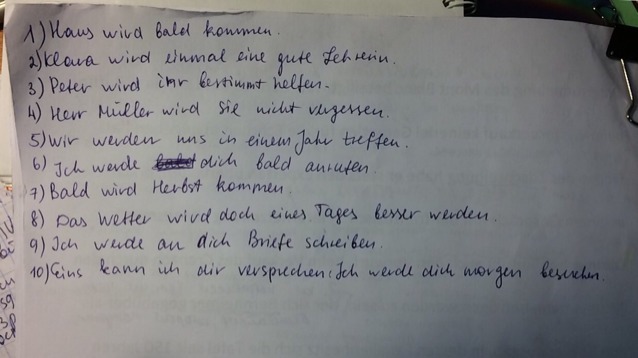 1) Hans wird bald kommen.
2) Klara wird einmal eine gute Lehrerin.
3) Peter wird ihr bestimmt helfen.
4) Herr Müller wird Sie nicht vergessen.
5) Wir werden uns in einem Jahr treffen.
6) Ich werde dich bald anrufen.
7) Bald wird Herbst kommen.
8) Das Wetter wird doch eines Tages besser werden.
9) Ich werde an dich Briefe schreiben.
10) Eins kann ich dir versprechen: Ich werde dich morgen besuchen.